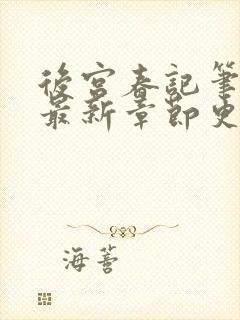 後宫春記筆
最新章節史
海薏